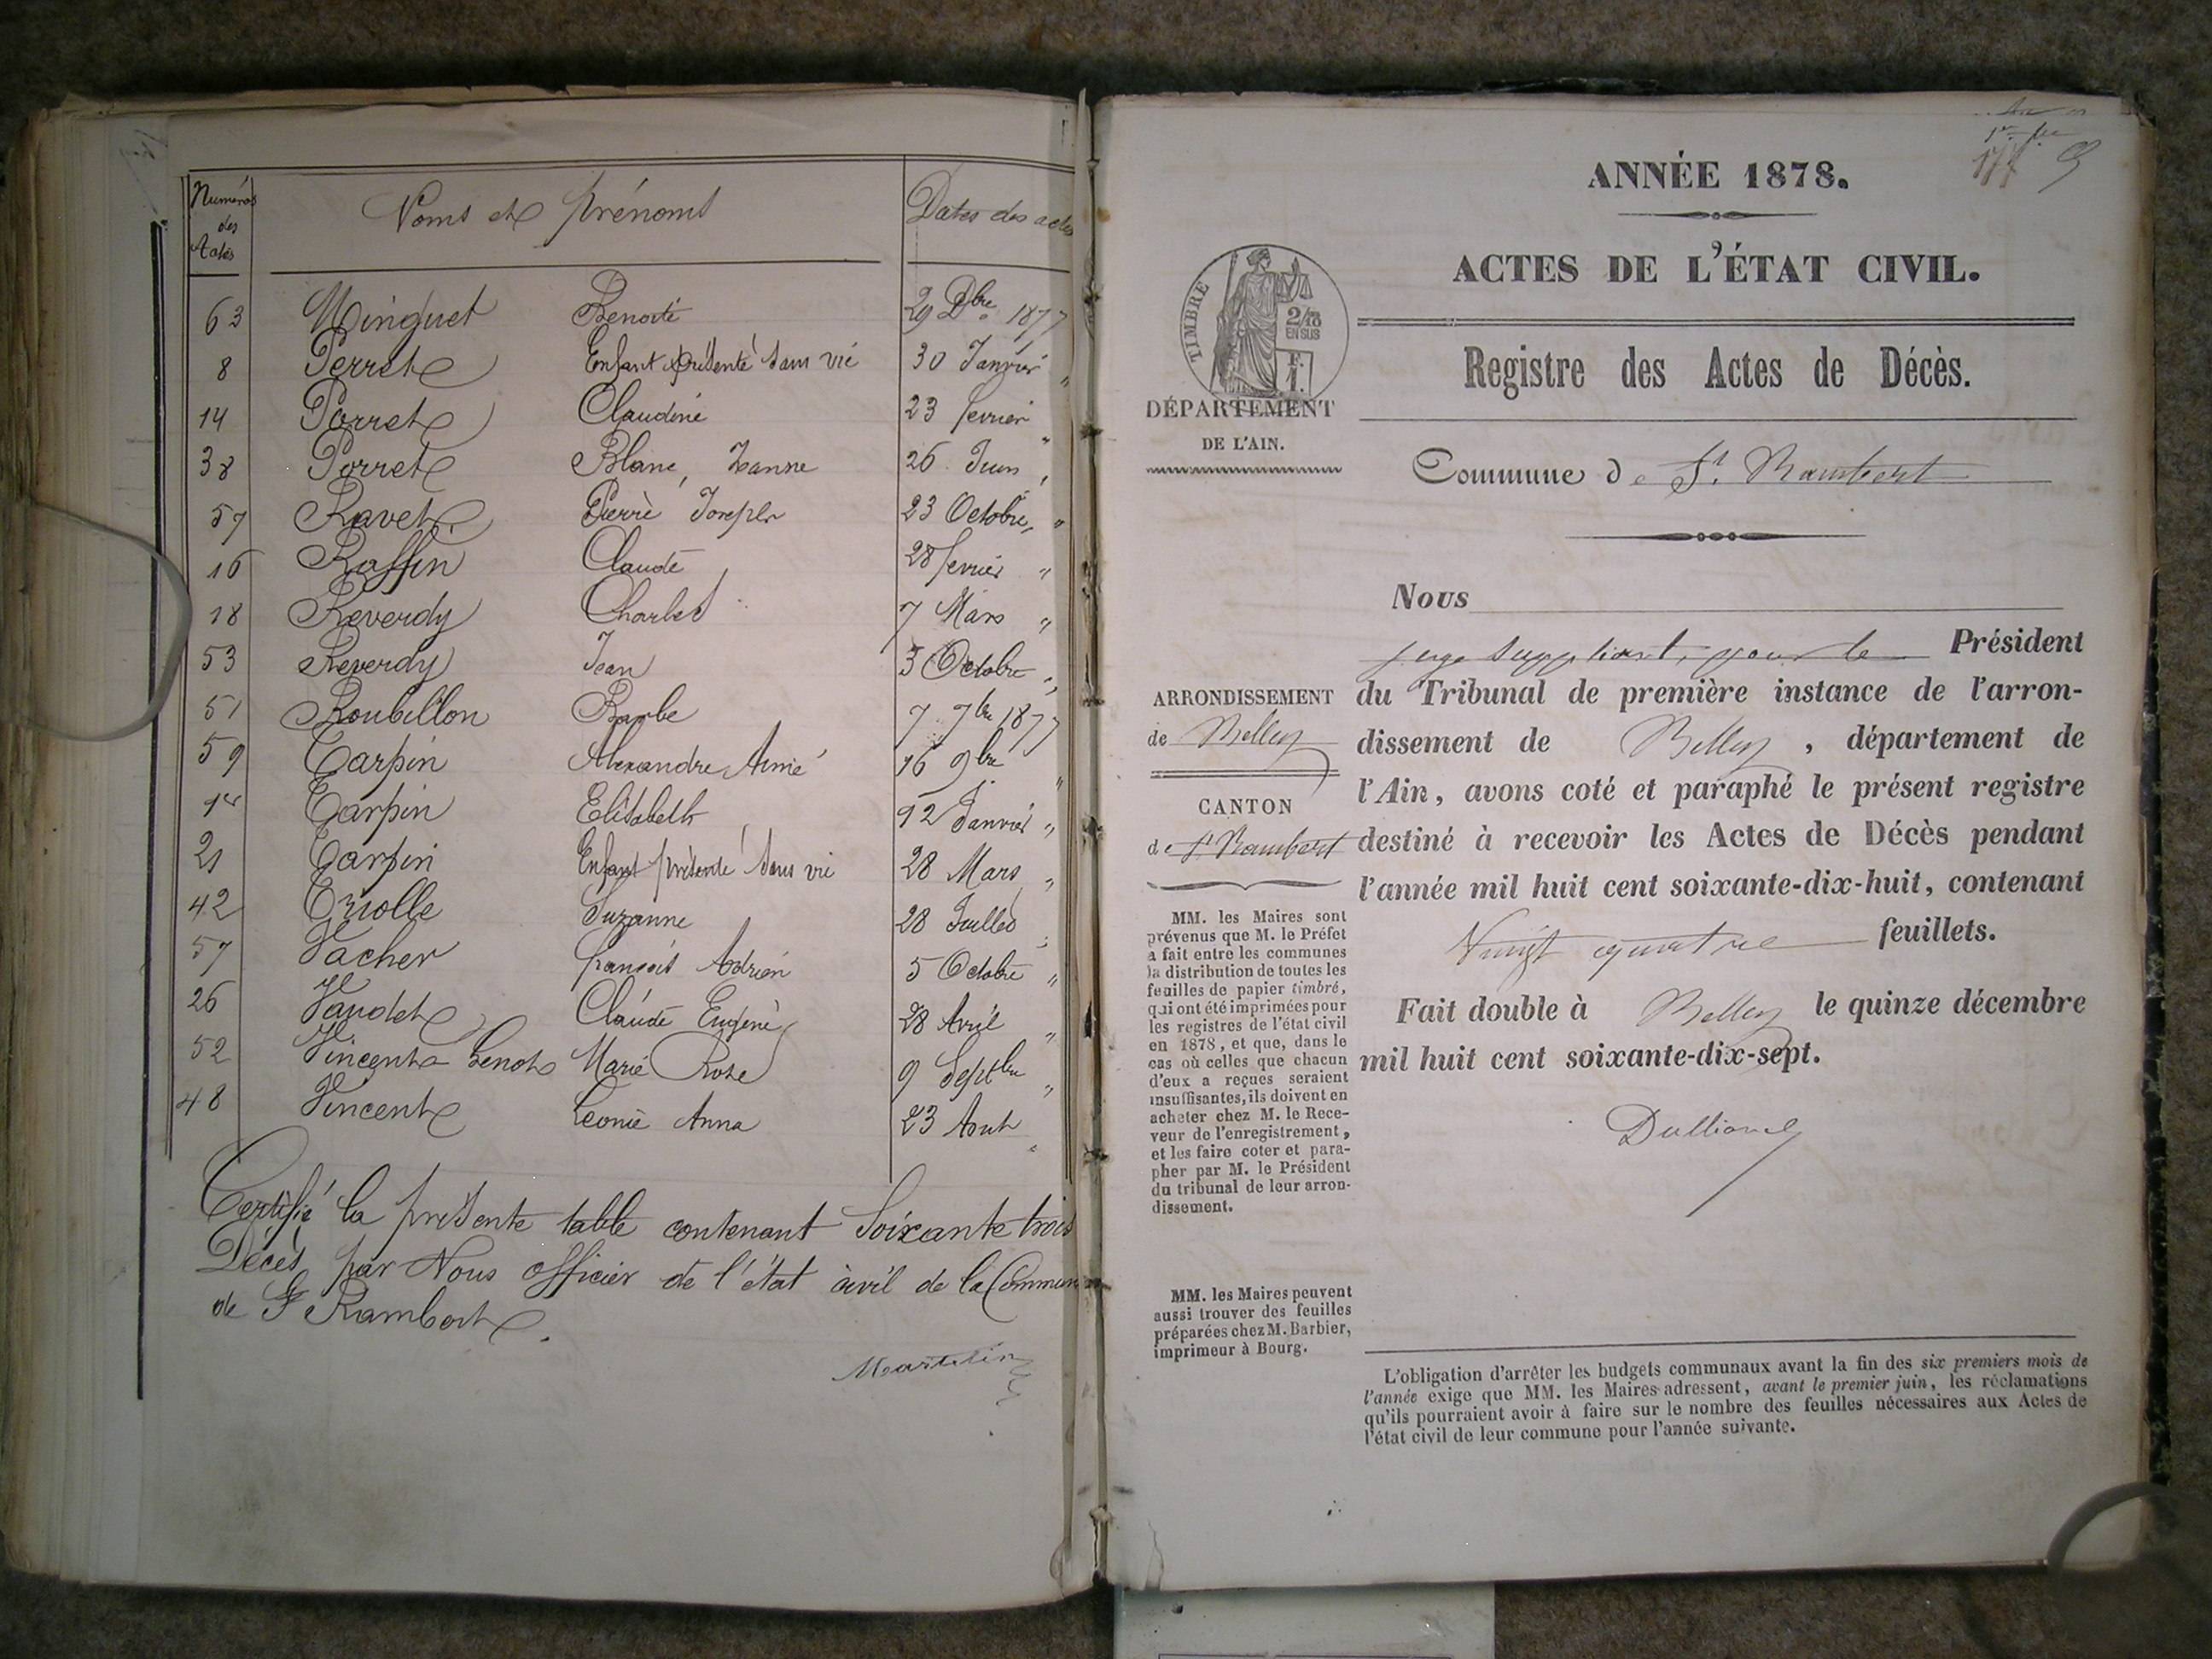 Numéros des Actes Noms et prénoms Dates des actes
63 Minguet Benoite 29 Dbre 1877
8 Perret Enfant présenté sans vie 30 Janvier "
14 Porret Claudine 23 fevrier "
38 Porret Blanc, Jeanne 26 Juin "
57 Ravet Pierre Joseph 23 Octobre "
16 Raffin Claude 28 fevrier "
18 Reverdy Charles 7 Mars "
53 Reverdy Jean 3 Octobre "
51 Roubillon Barbe 7 7bre 1877
59 Tarpin Alexandre Aimé 16 9bre "
1er Tarpin Elisabeth 12 Janvier "
21 Tarpin Enfant présenté sans vie 28 Mars "
42 Triolle Suzanne 28 Juillet "
57 Vacher françois Adrien 5 Octobre "
26 Vaudet Claude Eugène 28 Avril "
52 Vincent Genot Marie Rose 9 Septbre "
48 Vincent Leonie Anna 23 Aout "
Certifié la présente table contenant Soixante trois
Décès, par Nous officier de l'état civil de la Commune
de St Rambert.
ANNÉE 1878.
ACTES DE L'ÉTAT CIVIL.
TIMBRE
2/10
EN SUS
F.
1.
Registre des Actes de Décès.
DÉPARTEMENT
DE L'AIN.
Commune de St. Rambert
Nous
juge suppléant, pour le Président
du Tribunal de première instance de l'arron-
dissement de Belley, département de
l'Ain, avons coté et paraphé le présent registre
destiné à recevoir les Actes de Décès pendant
l'année mil huit cent soixante-dix-huit, contenant
Vingt quatre feuillets.
Fait double à Belley le quinze décembre
mil huit cent soixante-dix-sept.
ARRONDISSEMENT
de Belley
CANTON
de St Rambert
MM. les Maires sont
prévenus que M. le Préfet
a fait entre les communes
la distribution de toutes les
feuilles de papier timbré,
qui ont été imprimées pour
les registres de l'état civil
en 1878, et que, dans le
cas où celles que chacun
d'eux a reçues seraient
insuffisantes, ils doivent en
acheter chez M. le Rece-
veur de l'enregistrement,
et les faire coter et para-
pher par M. le Président
du tribunal de leur arron-
dissement.
MM. les Maires peuvent
aussi trouver des feuilles
préparées chez M. Barbier,
imprimeur à Bourg.
L'obligation d'arrêter les budgets communaux avant la fin des six premiers mois de
l'année exige que MM. les Maires adressent, avant le premier juin, les réclamations
qu'ils pourraient avoir à faire sur le nombre des feuilles nécessaires aux Actes de
l'état civil de leur commune pour l'année suivante.